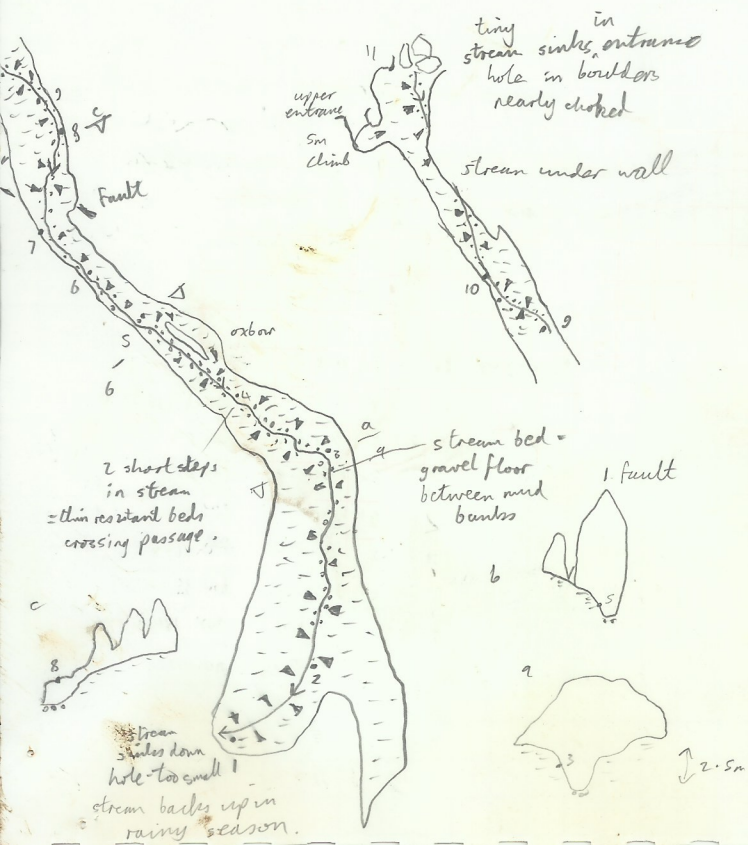 tiny in
stream sinks ^ entrance
hole in boulders
nearly choked
11
upper
entrance
5m
climb
stream under wall
10
9
9
8
c
Fault
7
6
5
oxbow
b
4
a
stream bed =
gravel floor
between mud
banks
2 short steps
in stream
= thin resistant beds
crossing passage.
1 fault
b
5
c
8
a
3
2.5m
2
stream
sinks down
hole - too small
1
stream backs up in
rainy season.